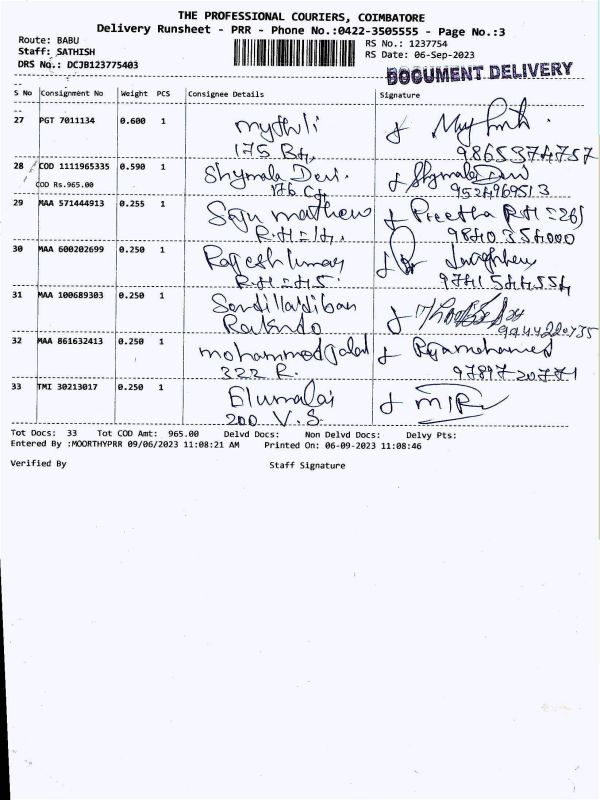 THE PROFESSIONAL COURIERS, COIMBATORE
Delivery Runsheet - PRR - Phone No.:0422-3505555 - Page No.:3
Route: BABU
RS No.: 1237754
Staff: SATHISH
RS Date: 06-Sep-2023
DRS No.: DCJB123775403
DOCUMENT DELIVERY
S No Consignment No Weight PCS Consignee Details Signature
27 PGT 7011134 0.600 1
175
9865374757
28 COD 1111965335 0.590 1 Shymala Devi.
COD Rs.965.00 176
9524969513
29 MAA 571444913 0.255 1 Saju mathew Preetha
9840354000
30 MAA 600202699 0.250 1
31 MAA 100689303 0.250 1
32 MAA 861632413 0.250 1 mohammed
322 R.
33 TMI 30213017 0.250 1 Elumalai
200 V.S.
Tot Docs: 33 Tot COD Amt: 965.00 Delvd Docs: Non Delvd Docs: Delvy Pts:
Entered By :MOORTHYPRR 09/06/2023 11:08:21 AM Printed On: 06-09-2023 11:08:46
Verified By Staff Signature